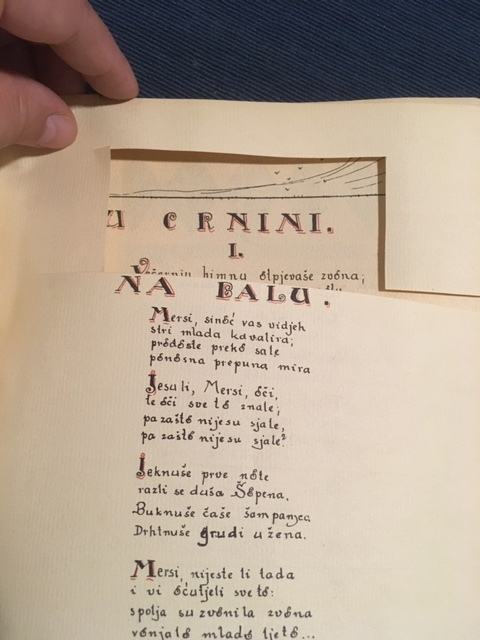 U CRNINI.
I.
Večernju himnu ótpjevaše zvóna;
NA BALU.
Mersi, sinóć vas vidjeh
stri mlada kavalira;
pródóste prekó sale
pónósna prepuna mira
Jesu li, Mersi, óči,
te óči sve tó znale;
pa zaštó nijesu sjale,
pa zaštó nijesu sjale?
Jeknuše prve nóte
razli se duša Šópena.
Buknuše čaše šampanjca
Drhtnuše grudi u žena.
Mersi, nijeste li tada
i vi óćutjeli sve tó:
spolja su zvónila zvóna
vónjaló mladó ljetó...